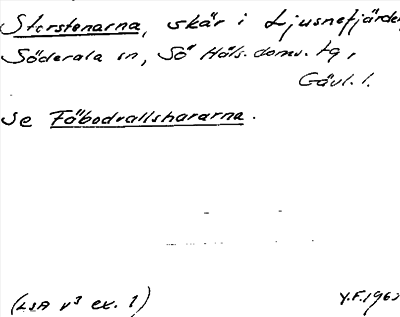 Storstenarna, skär i Ljusnefjärden
Söderala sn, Sö Häls. doms. tg,
Gävl. l.
se Fäbodvallshararna.
(LSA v3 ex. 1)
Y.F. 1962